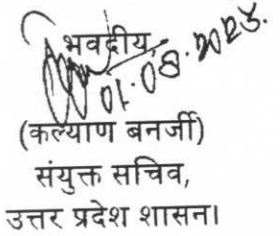 भवदीय,
01.08.2023.
(कल्याण बनर्जी)
संयुक्त सचिव,
उत्तर प्रदेश शासन।